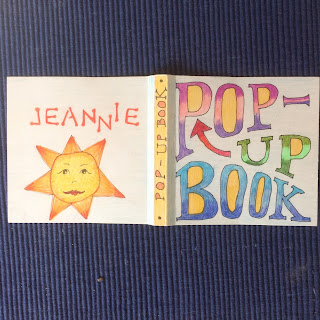 JEANNIE
POP-UP BOOK
POP-
UP
BOOK